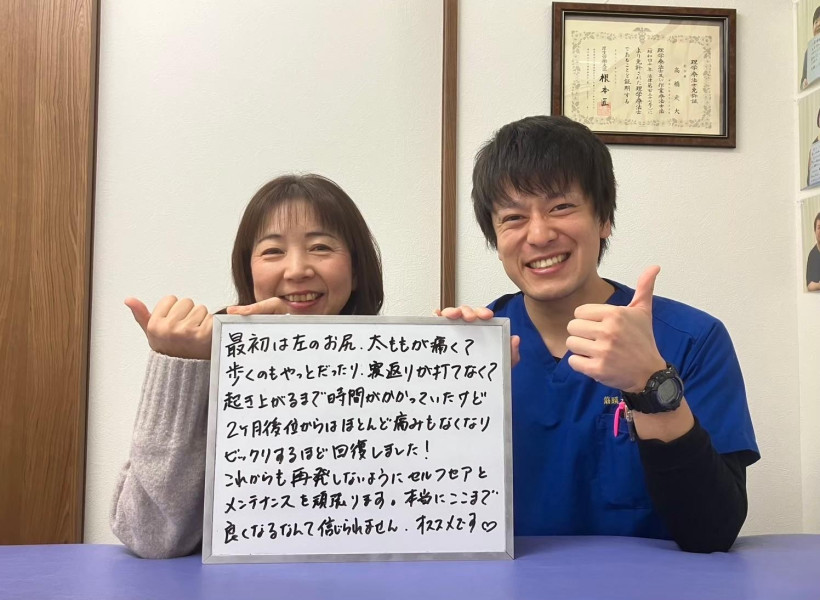 理学療法士免許証
根本匠
最初は左のお尻、太ももが痛くて
歩くのもやっとだったり、寝返りが打てなくて
起き上がるまで時間がかかっていたけど
2ヶ月後位からはほとんど痛みもなくなり
ビックリするほど回復しました!
これからも再発しないようにセルフセアと
メンテナンスを頑張ります。本当にここまで
良くなるなんて信じられません。オススメです♡